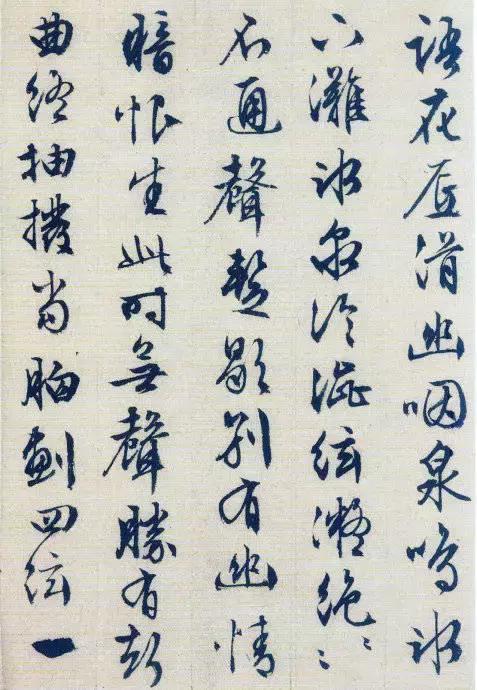 語花底滑幽咽泉鳴冰
下灘冰泉冷澀絃凝絶〻〻
不通聲暫歇別有幽情
暗恨生此时無聲勝有聲
曲終抽撥當胸劃四絃一